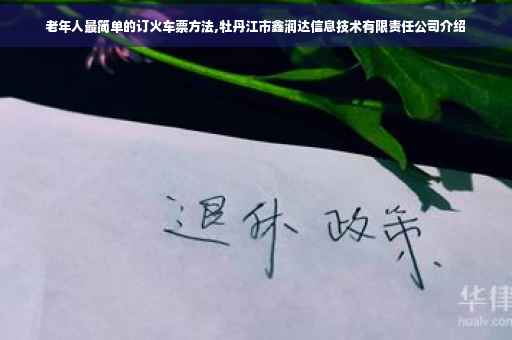 老年人最简单的订火车票方法,牡丹江市鑫润达信息技术有限责任公司介绍
退休政策
华律
hualv.com